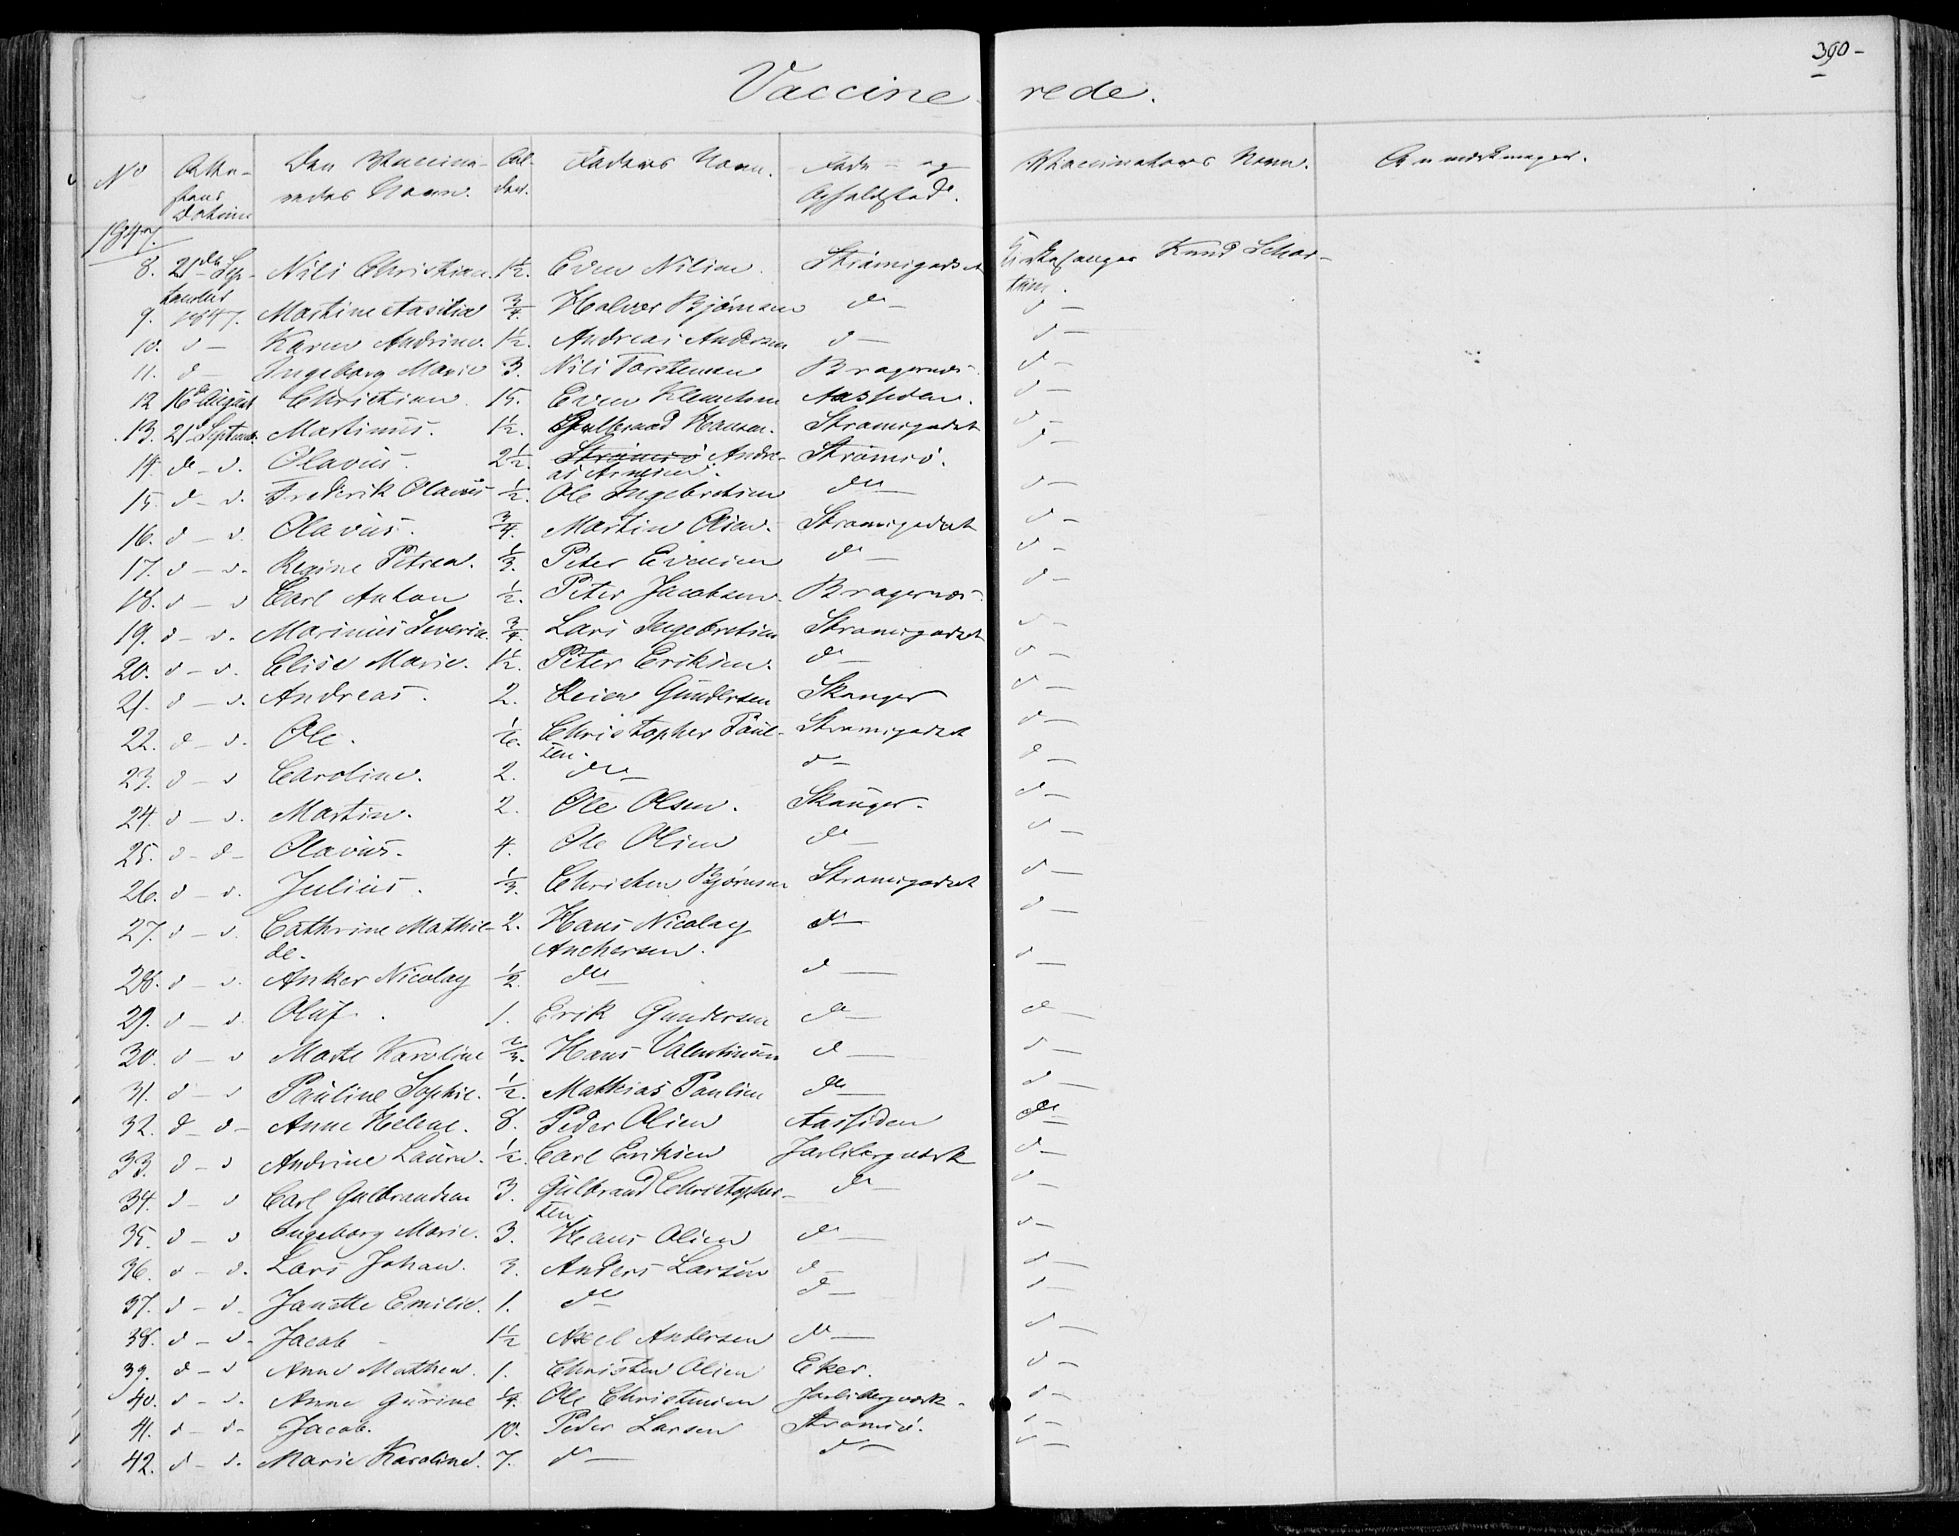 390-
Vaccine-rede.
No Attestens Datum Den Vaccineredes Navn. Alder. Faders Navn. Føde- og Opholdsted. Vaccinateurs Navn. Anmærkninger.
1847
8. 21de Sep- Nils Christian. 1½. Even Nilsen. Strömsgodset Kirkesanger Knud Schar-
tember 1847. tum.
9. Martine Aasilia ¾. Halvor Bjørnsen do - d -
10. d - Karen Andrine. 1½. Andreas Andersen d - d -
11. d - Ingeborg Marie 3. Nils Torstensen Bragernæs. d -
12 16 August Christian. 15. Even Klemetsen Aassiden. d -
13. 21 Septemb. Martinus. 1½. Gulbrand Hansen. Strømsgodset d -
14. do - d. Olavus. 2½. Strömsö Andre- Strömsö. d -
as Arnesen.
15. d - d. Frederik Olavus ½. Ole Ingebretsen do - d -
16. d - d. Olavus. ¾. Martin Olsen. Stromsgodset d -
17. d - d. Regine Petrea. ⅓. Peter Evensen do - d -
18. d - d Carl Anton ½. Peter Jacobsen. Bragernæs. d -
19. d - d. Marinius Severin. ¾. Lars Ingebretsen Stromsgodset d -
20. d - d. Elise Marie. 1½. Peter Eriksen. do - d -
21. d - d. Andreas. 2. Reier Gundersen Skanger d -
22. d - d. Ole. ⅙. Christopher Paul- Stromsgodset d -
sen.
23. d - d Caroline. 2. do - d - d -
24. d - d. Martin. 2. Ole Olsen. Skanger. d -
25. d - d - Olavus. 4. Ole Olsen do - d -
26. d - d. Julius. ⅓. Christen Bjørnsen Stromsgodset d -
27. d - d. Cathrine Mathil- 2. Hans Nicolay do - d -
de. Anchersen.
28. d - d. Anker Nicolay ½. do - d - d -
29. d - d. Oluf. 1. Erik Gundersen do - do -
30. d - d Marte Karoline ⅔. Hans Valentinsen d - d -
31. d - d Pauline Sophie. ½. Mathias Paulsen do - d -
32. d - d - Anne Helene. 8. Peder Olsen Aassiden do -
33. d - d Andrine Laura. ½. Carl Eriksen Jarlsbergværk d -
34. d - d Carl Gulbrandsen 3. Gulbrand Christopher- do - d -
sen
35. d - d Ingeborg Marie. 3. Hans Olsen do - d -
36. d - d. Lars Johan. 3. Anders Larsen d - d -
37. d - d. Janette Emilie. 1. do d - d -
38. d - d - Jacob - 1½ Axel Andersen do - d -
39. d - d Anne Mathea. 1. Christen Olsen Eker. d -
40. d - d. Anne Gurine ¼. Ole Christensen Jarlsbergværk. d -
41. d - d - Jacob. 10. Peder Larsen Stromsö. d -
42. d - d. Marie Karoline. 7. d - d - d -